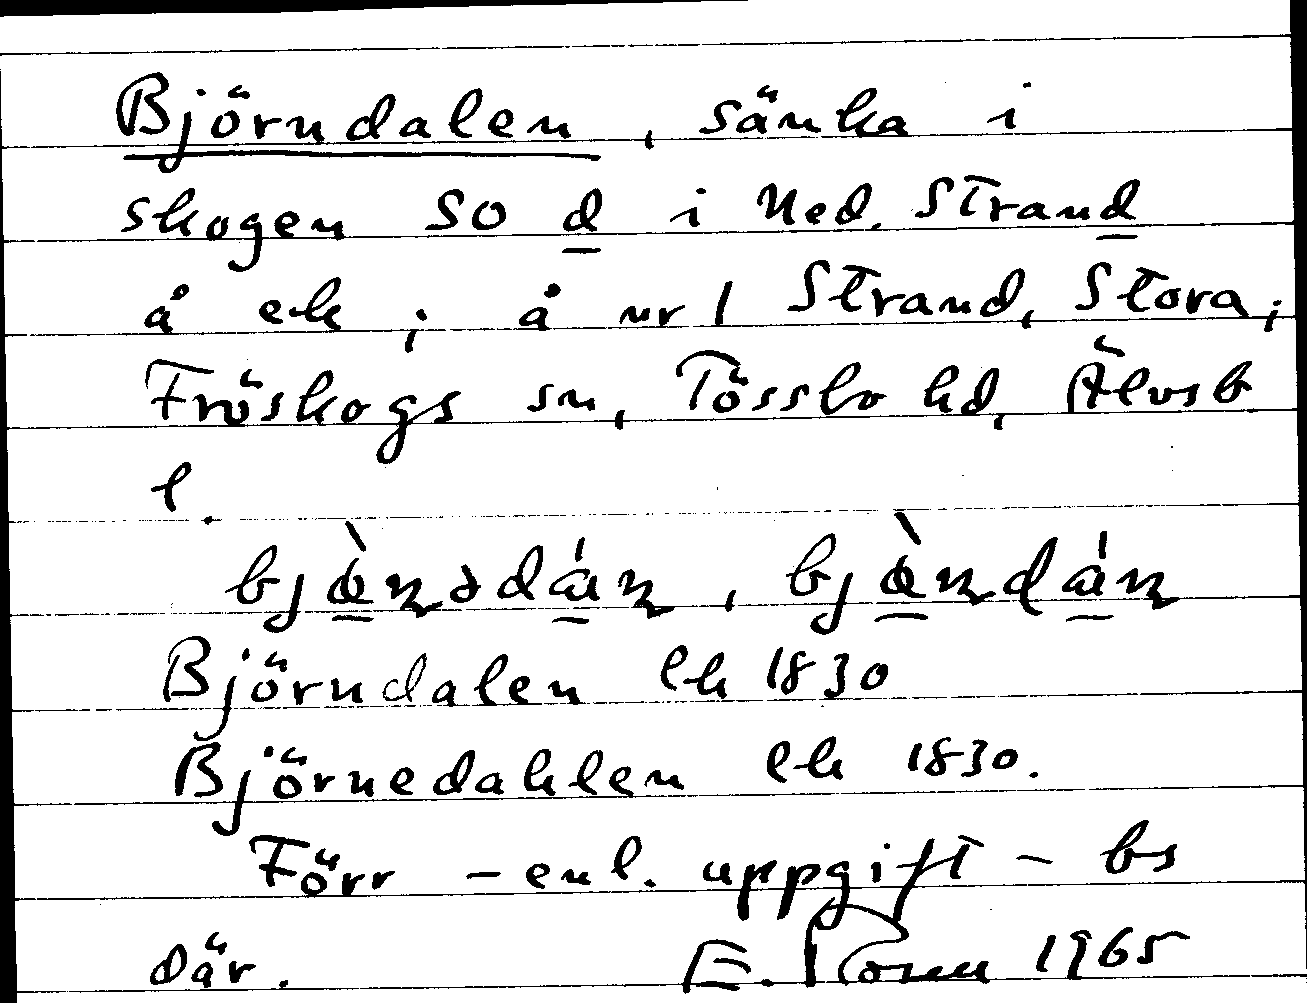 Björndalen, sänka i
skogen SO d i Ned. Strand
å ek; å nr 1 Strand, Stora,
Fröskogs sn, Tössbo hd, Älvsb
l.
Björndalen lk 1830
Björnedahlen lk 1830.
Förr – enl. uppgift – bs
där. E. 1965